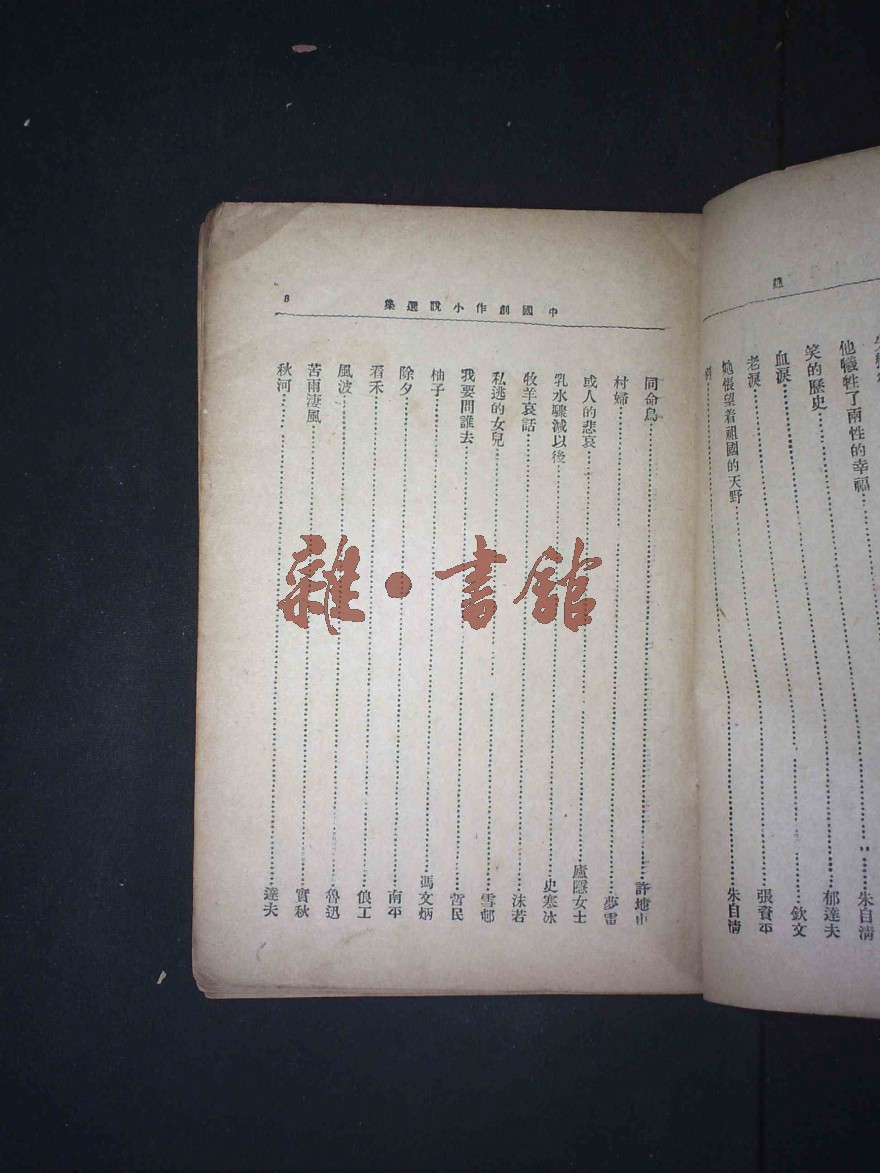 他犧牲了兩性的幸福
笑的歷史 朱自清
血淚 郁達夫
老淚 欽文
她悵望着祖國的天野 張資平
別 朱自清
中國創作小說選集 8
同命鳥 許地山
村婦 夢雷
或人的悲哀 廬隱女士
乳水驟減以後 史寒冰
牧羊哀話 沫若
私逃的女兒 雪邨
我要問誰去 哲民
柚子 馮文炳
除夕 南平
看禾 俍工
風波 魯迅
苦雨淒風 實秋
秋河 達夫
雜·書館